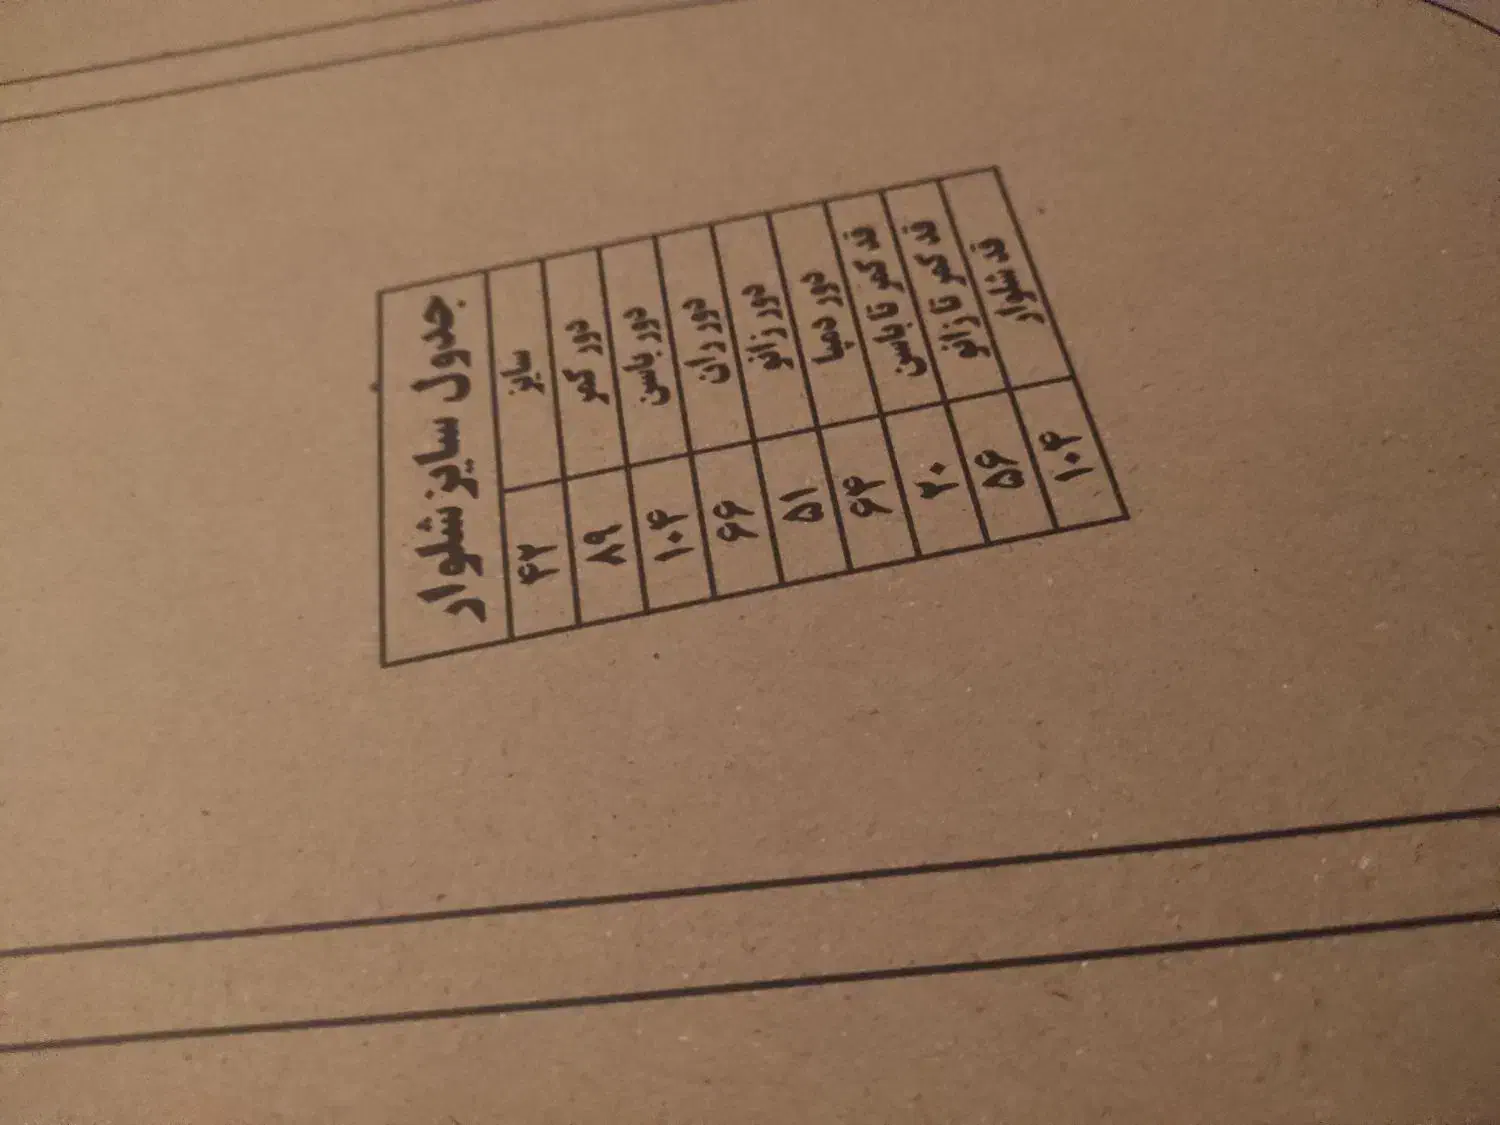 جدول سایز شلوار
سایز ۴۲
دور کمر ۸۹
دور باسن ۱۰۴
دور ران ۶۶
دور زانو ۵۱
دور دمپا ۶۴
قد کمر تا باسن ۲۰
قد کمر تا زانو ۵۶
قد شلوار ۱۰۴